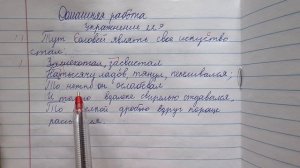 Домашняя работа
Упражнение
Тут Соловей являть свое искусство
стал
Защелкал, засвистал
На тысячу ладов, тянул, переливался;
То нежно он ослабевал
И томно вдалеке свирелью отдавался,
То мелкой дробью вдруг по роще
рассыпался.